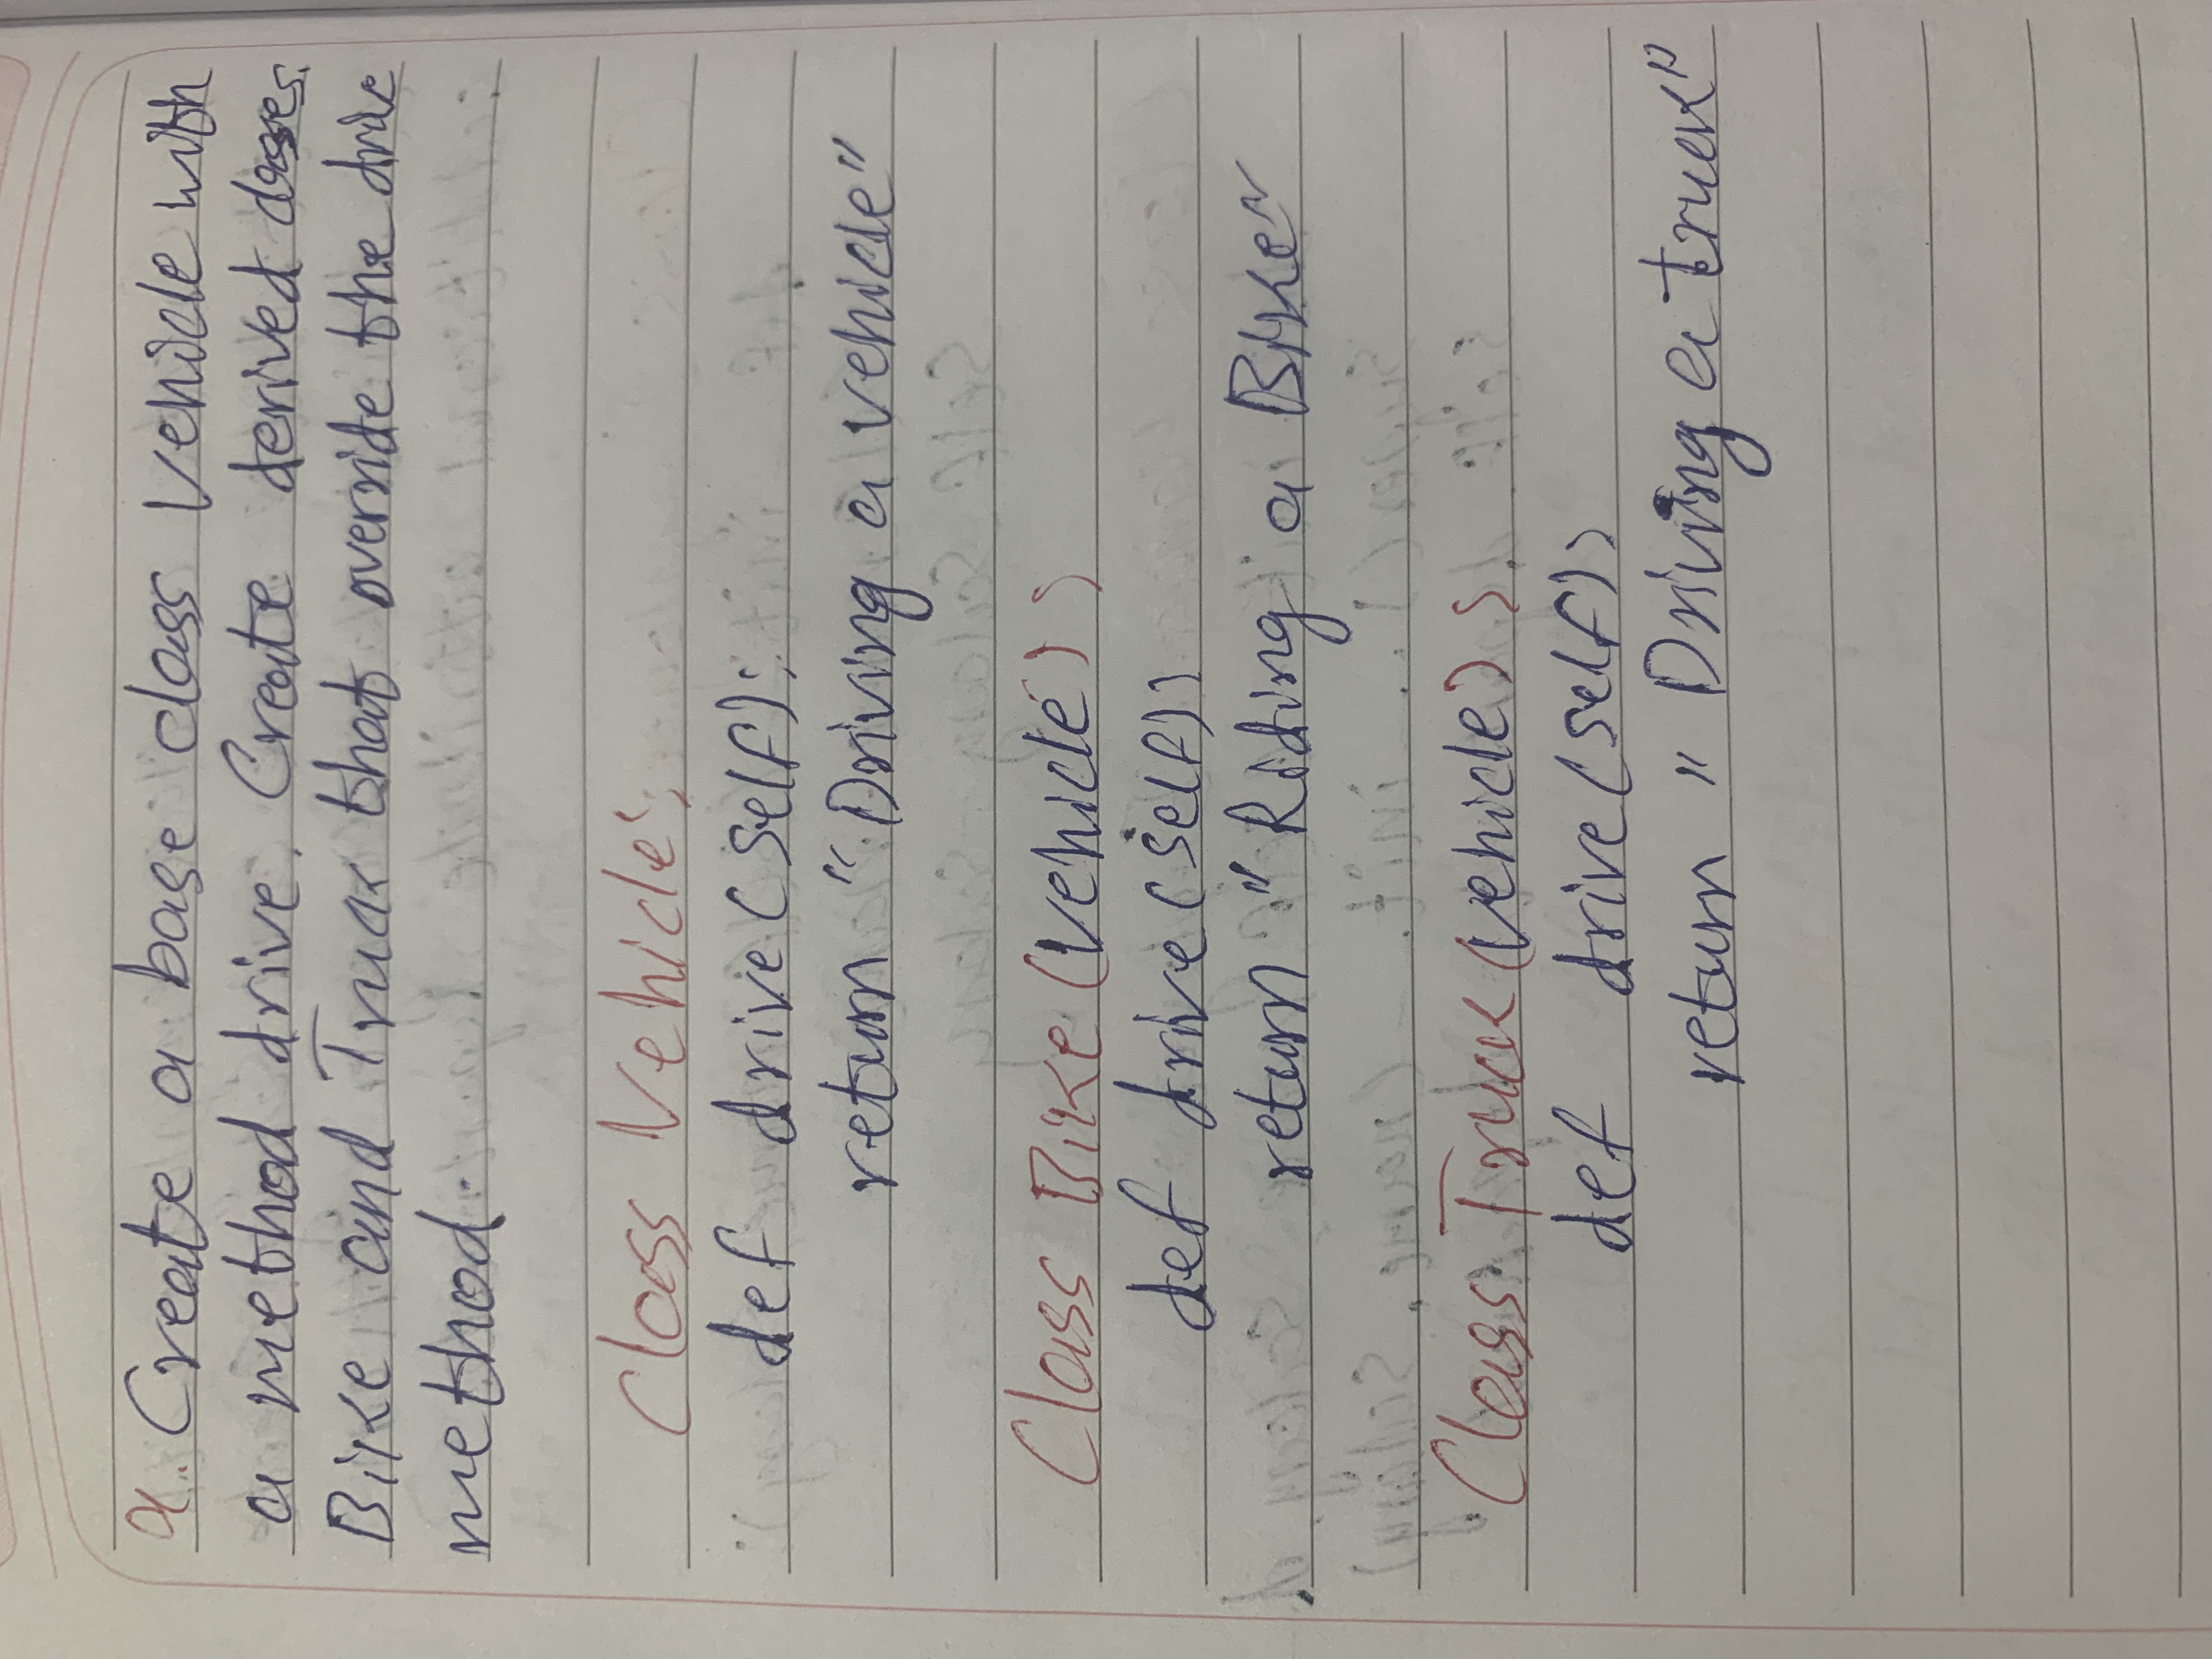 Q. Create a base class Vehicle with
a method drive. Create derived classes.
Bike and Truck that override the drive
method.
Class Vehicle:
def drive(self):
return "Driving a vehicle"
Class Bike(vehicle):
def drive(self):
return "Riding a Bike"
Class Truck(vehicle):
def drive(self):
return "Driving a truck"